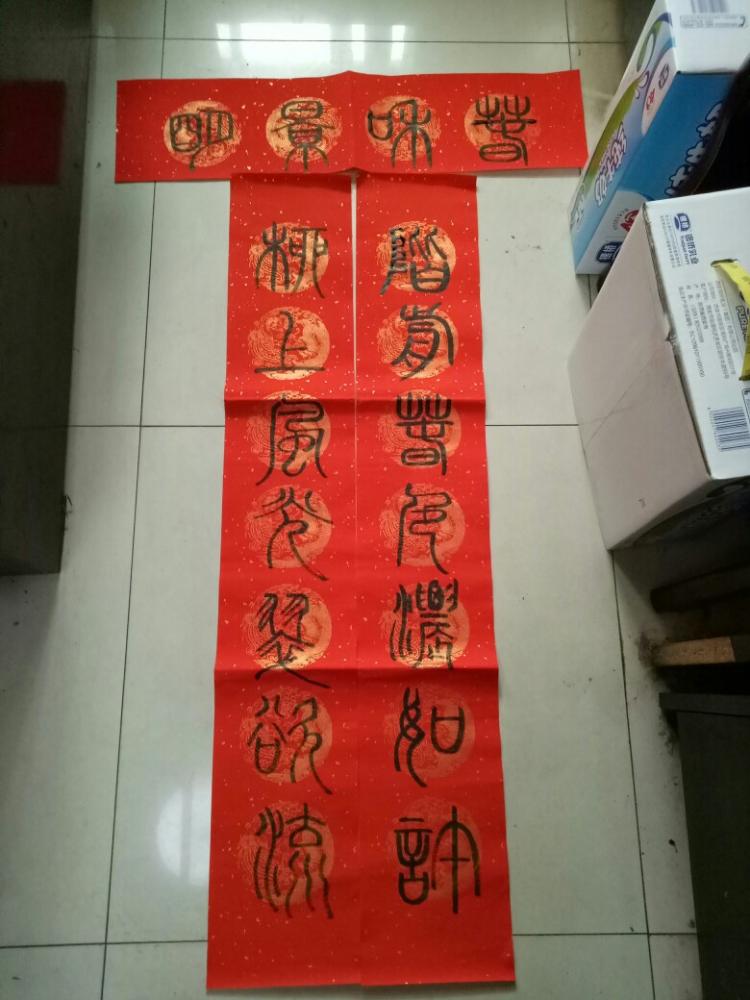 春和景明
階前春色濃如許
柳上風光翠欲流